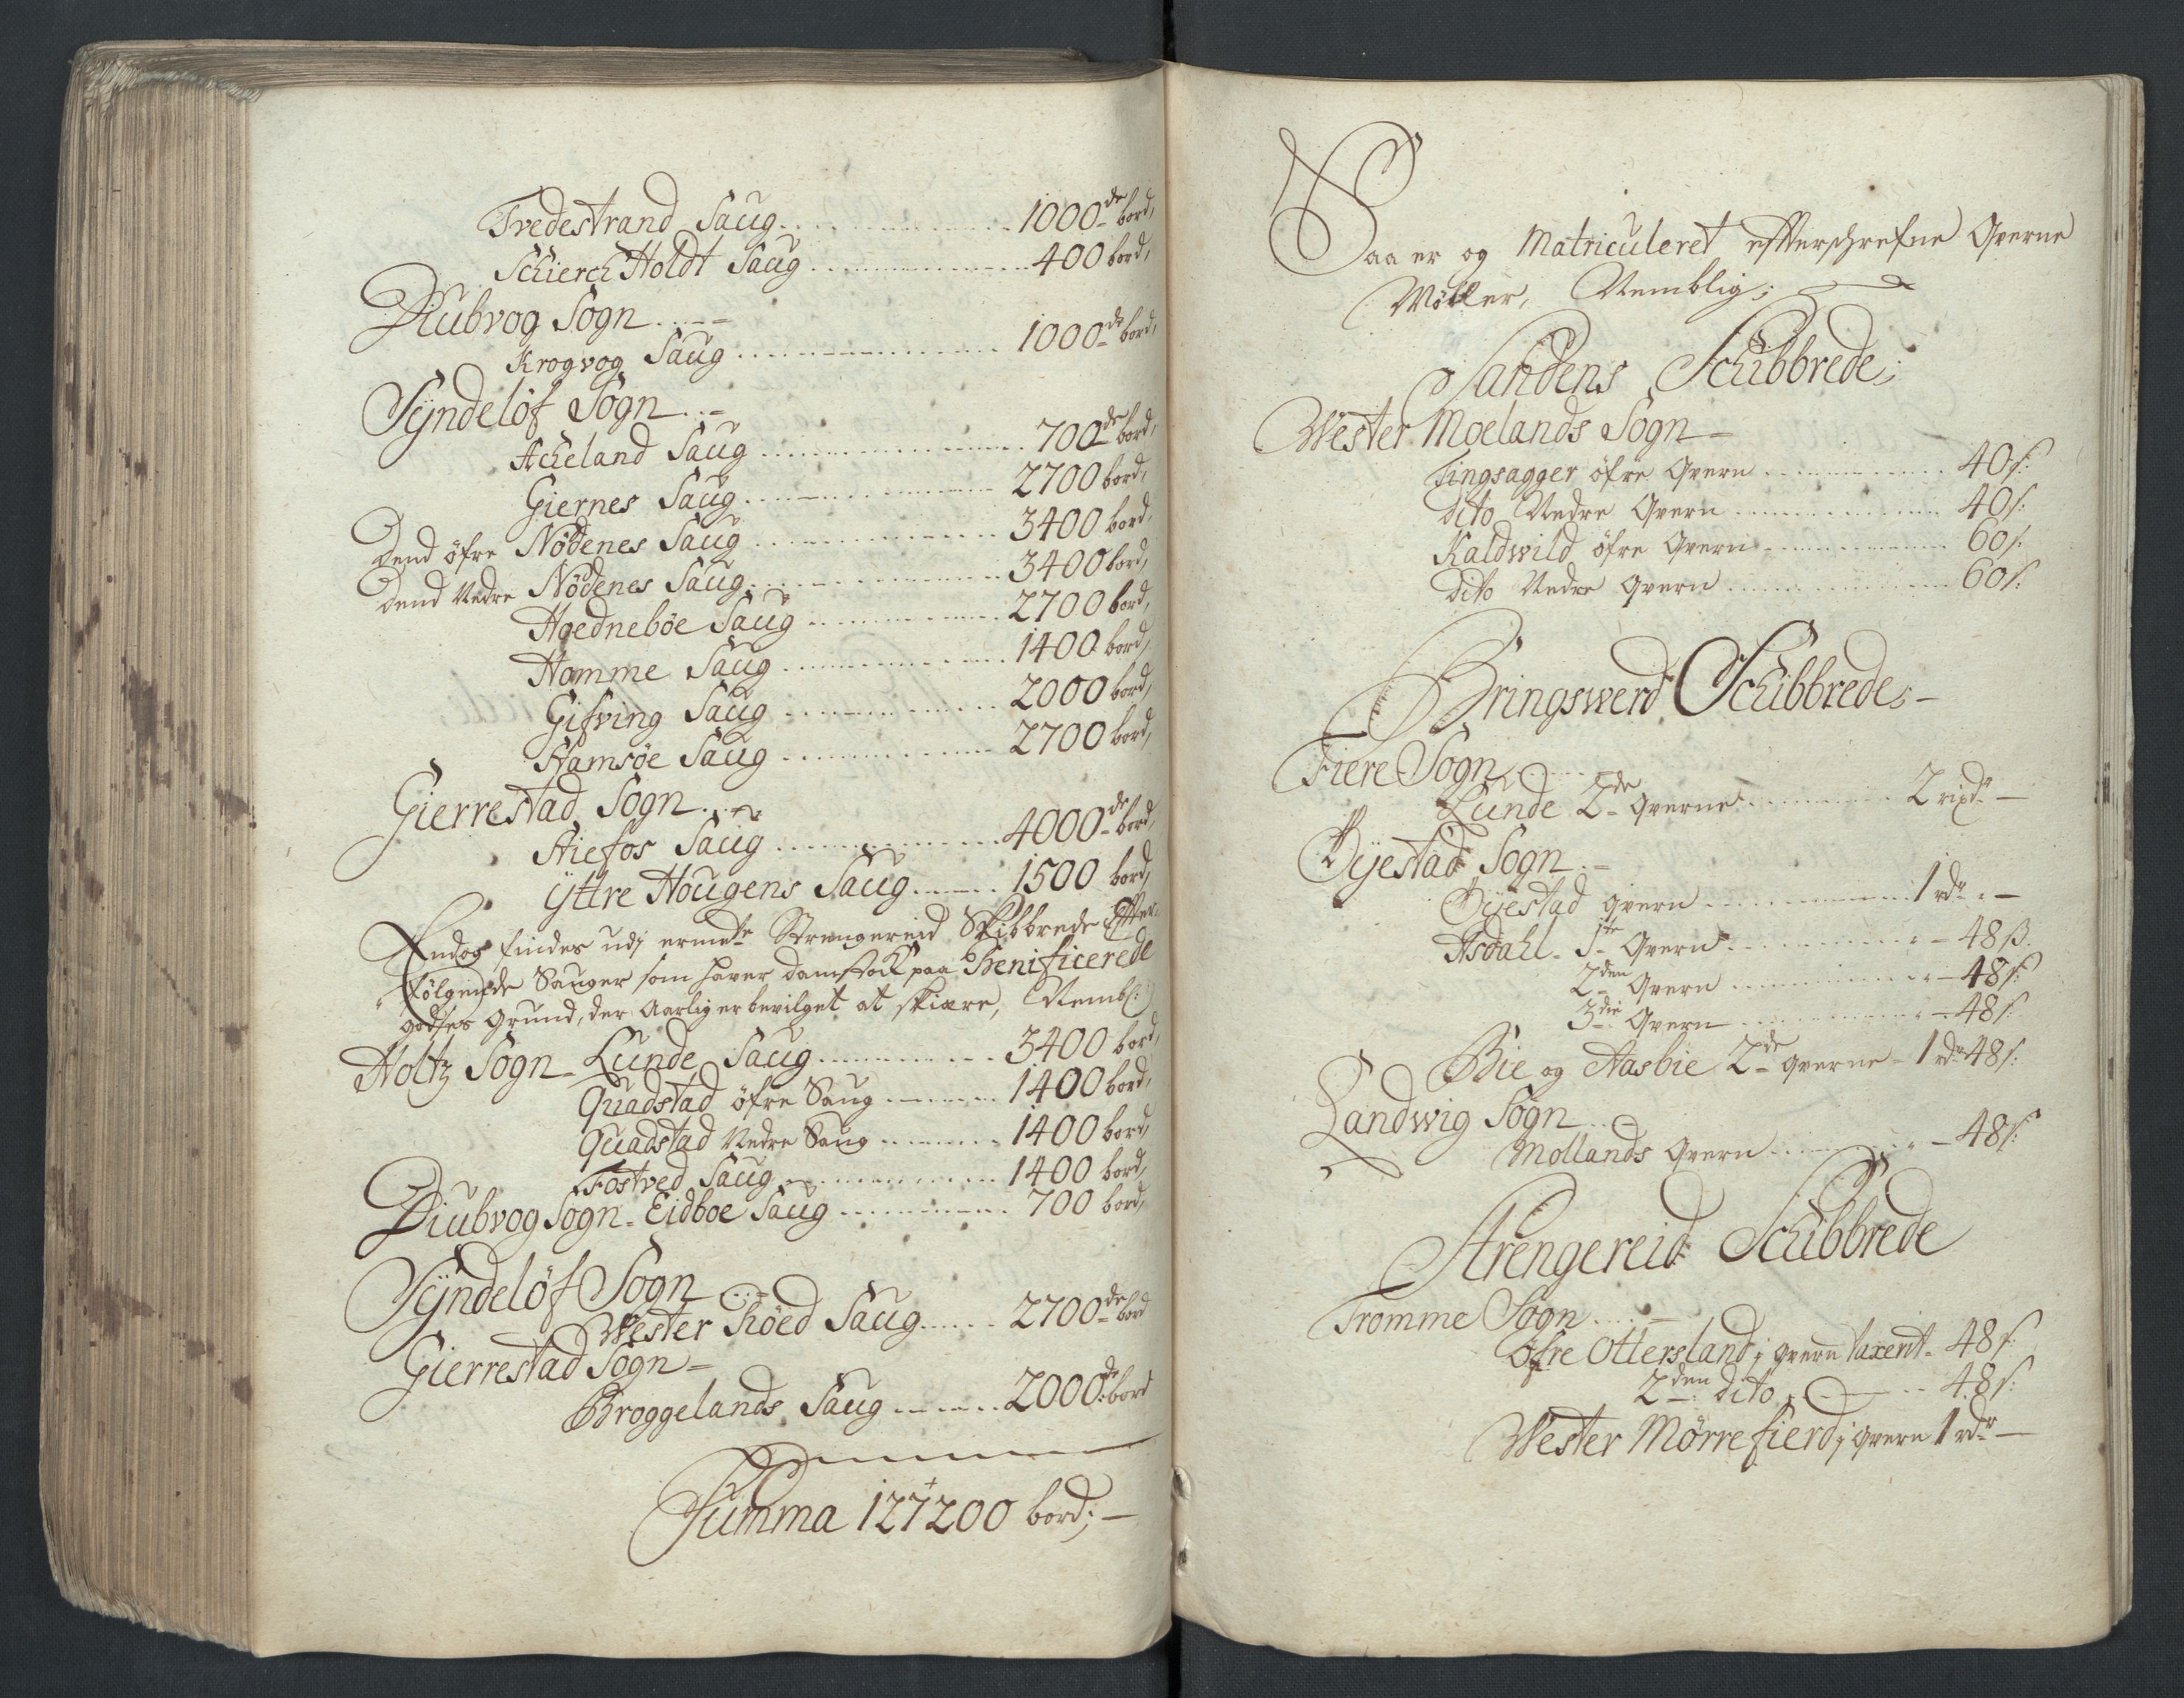 Tvedestrand Saug 1000de bord,
Schierch Holdt Saug 400 bord,
Diubvog Sogn
Krogvog Saug 1000de bord,
Syndelöf Sogn
Acheland Saug 700de bord,
Giernes Saug 2700 bord,
Dend öfre Nödenes Saug 3400 bord,
Dend Nedre Nödenes Saug 3400 bord,
Hoedneböe Saug 2700 bord,
Homme Saug 1400 bord,
Gifving Saug 2000 bord,
Hamsöe Saug 2700 bord,
Gierrestad Sogn
Aiefos Saug 4000de bord,
Yttre Hougens Saug 1500 bord,
Endog findes udj ermelte Strengereid Skibbrede Effter
følgende Sauger som haver damstock paa Benificerede
godses Grund, der Aarlig er bevilget at skiære, Nembl:
Holtz Sogn - Lunde Saug 3400 bord,
Quadstad öfre Saug 1400 bord,
Quadstad Nedre Saug 1400 bord,
Fostved Saug 1400 bord,
Diubvog Sogn - Eidboe Saug 700 bord,
Syndelöf Sogn
Wester Röed Saug 2700de bord
Gierrestad Sogn
Broggelands Saug 2000de bord
Summa 127200 bord;
Saa er og Matriculeret effterschrefne Qverne
Møller, Nemblig;
Sandens Schibbrede;
Wester Moelands Sogn
Tingsagger öfre Qvern 40 s:
dito Nedre Qvern 40 s:
Kaldwild öfre Qvern 60 s:
dito Nedre qvern 60 s:
Bringswerd Schibbrede;
Fiere Sogn
Lunde 2de qverne 2 rixdr
Öyestad Sogn
Öyestad qvern 1 rdr
Asdahl - 1te Qvern 48 ß.
2den Qvern 48 s:
3die Qvern 48 s:
Bie og Aasbie 2de qverne - 1 rdr 48 s:
Landwig Sogn
Mollands Qvern 48 s:
Strengereid Schibbrede
Tromme Sogn
Öfre Ottersland j qvern taxerit - 48 s:
2den dito 48 s:
Wester Mørrefierd j qvern 1 rdr